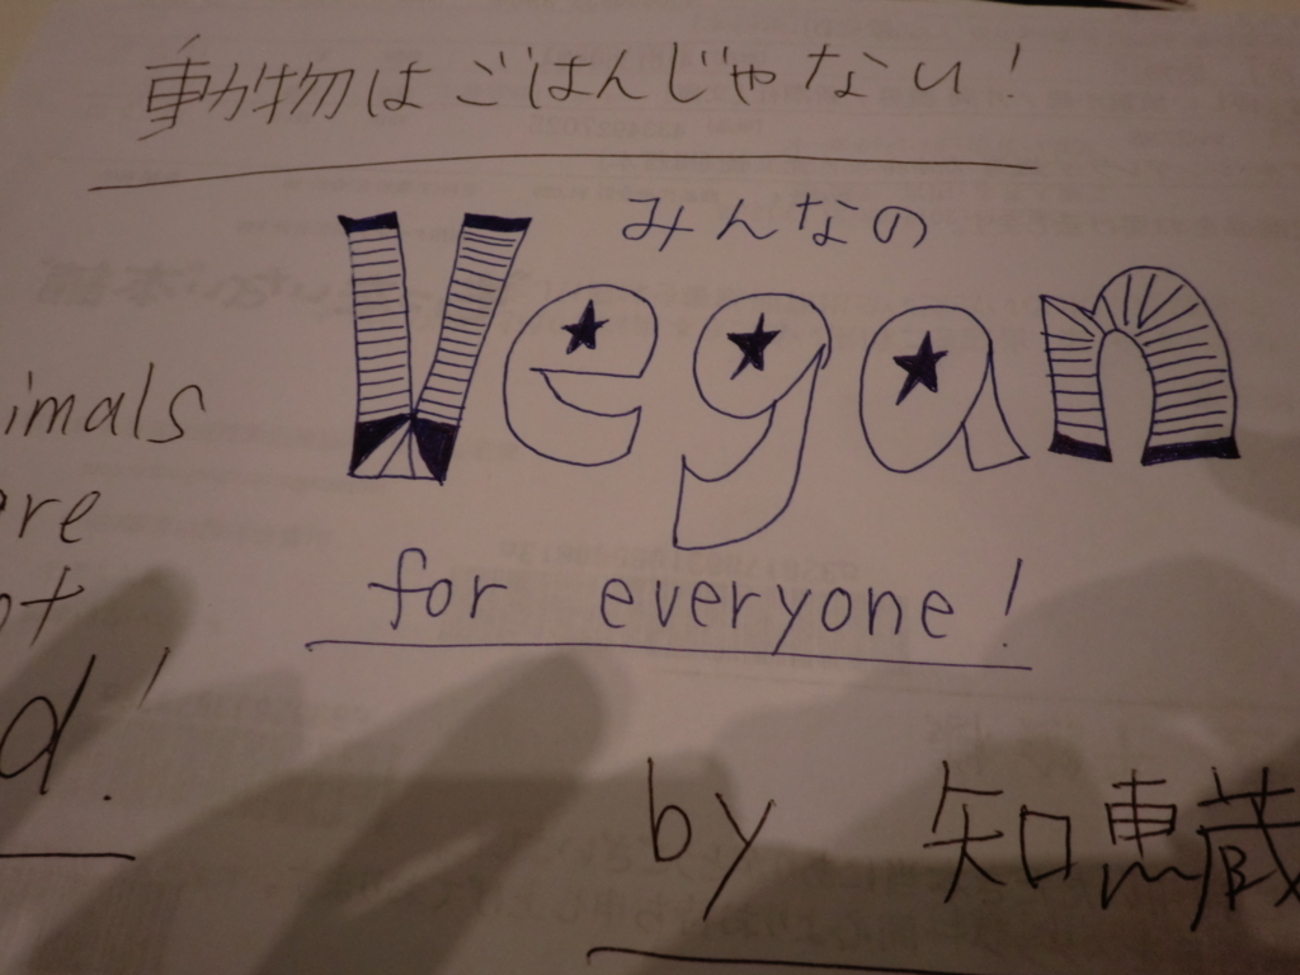 動物はごはんじゃない!
みんなの
Vegan
for everyone!
imals
re
t
d!
by 知恵蔵